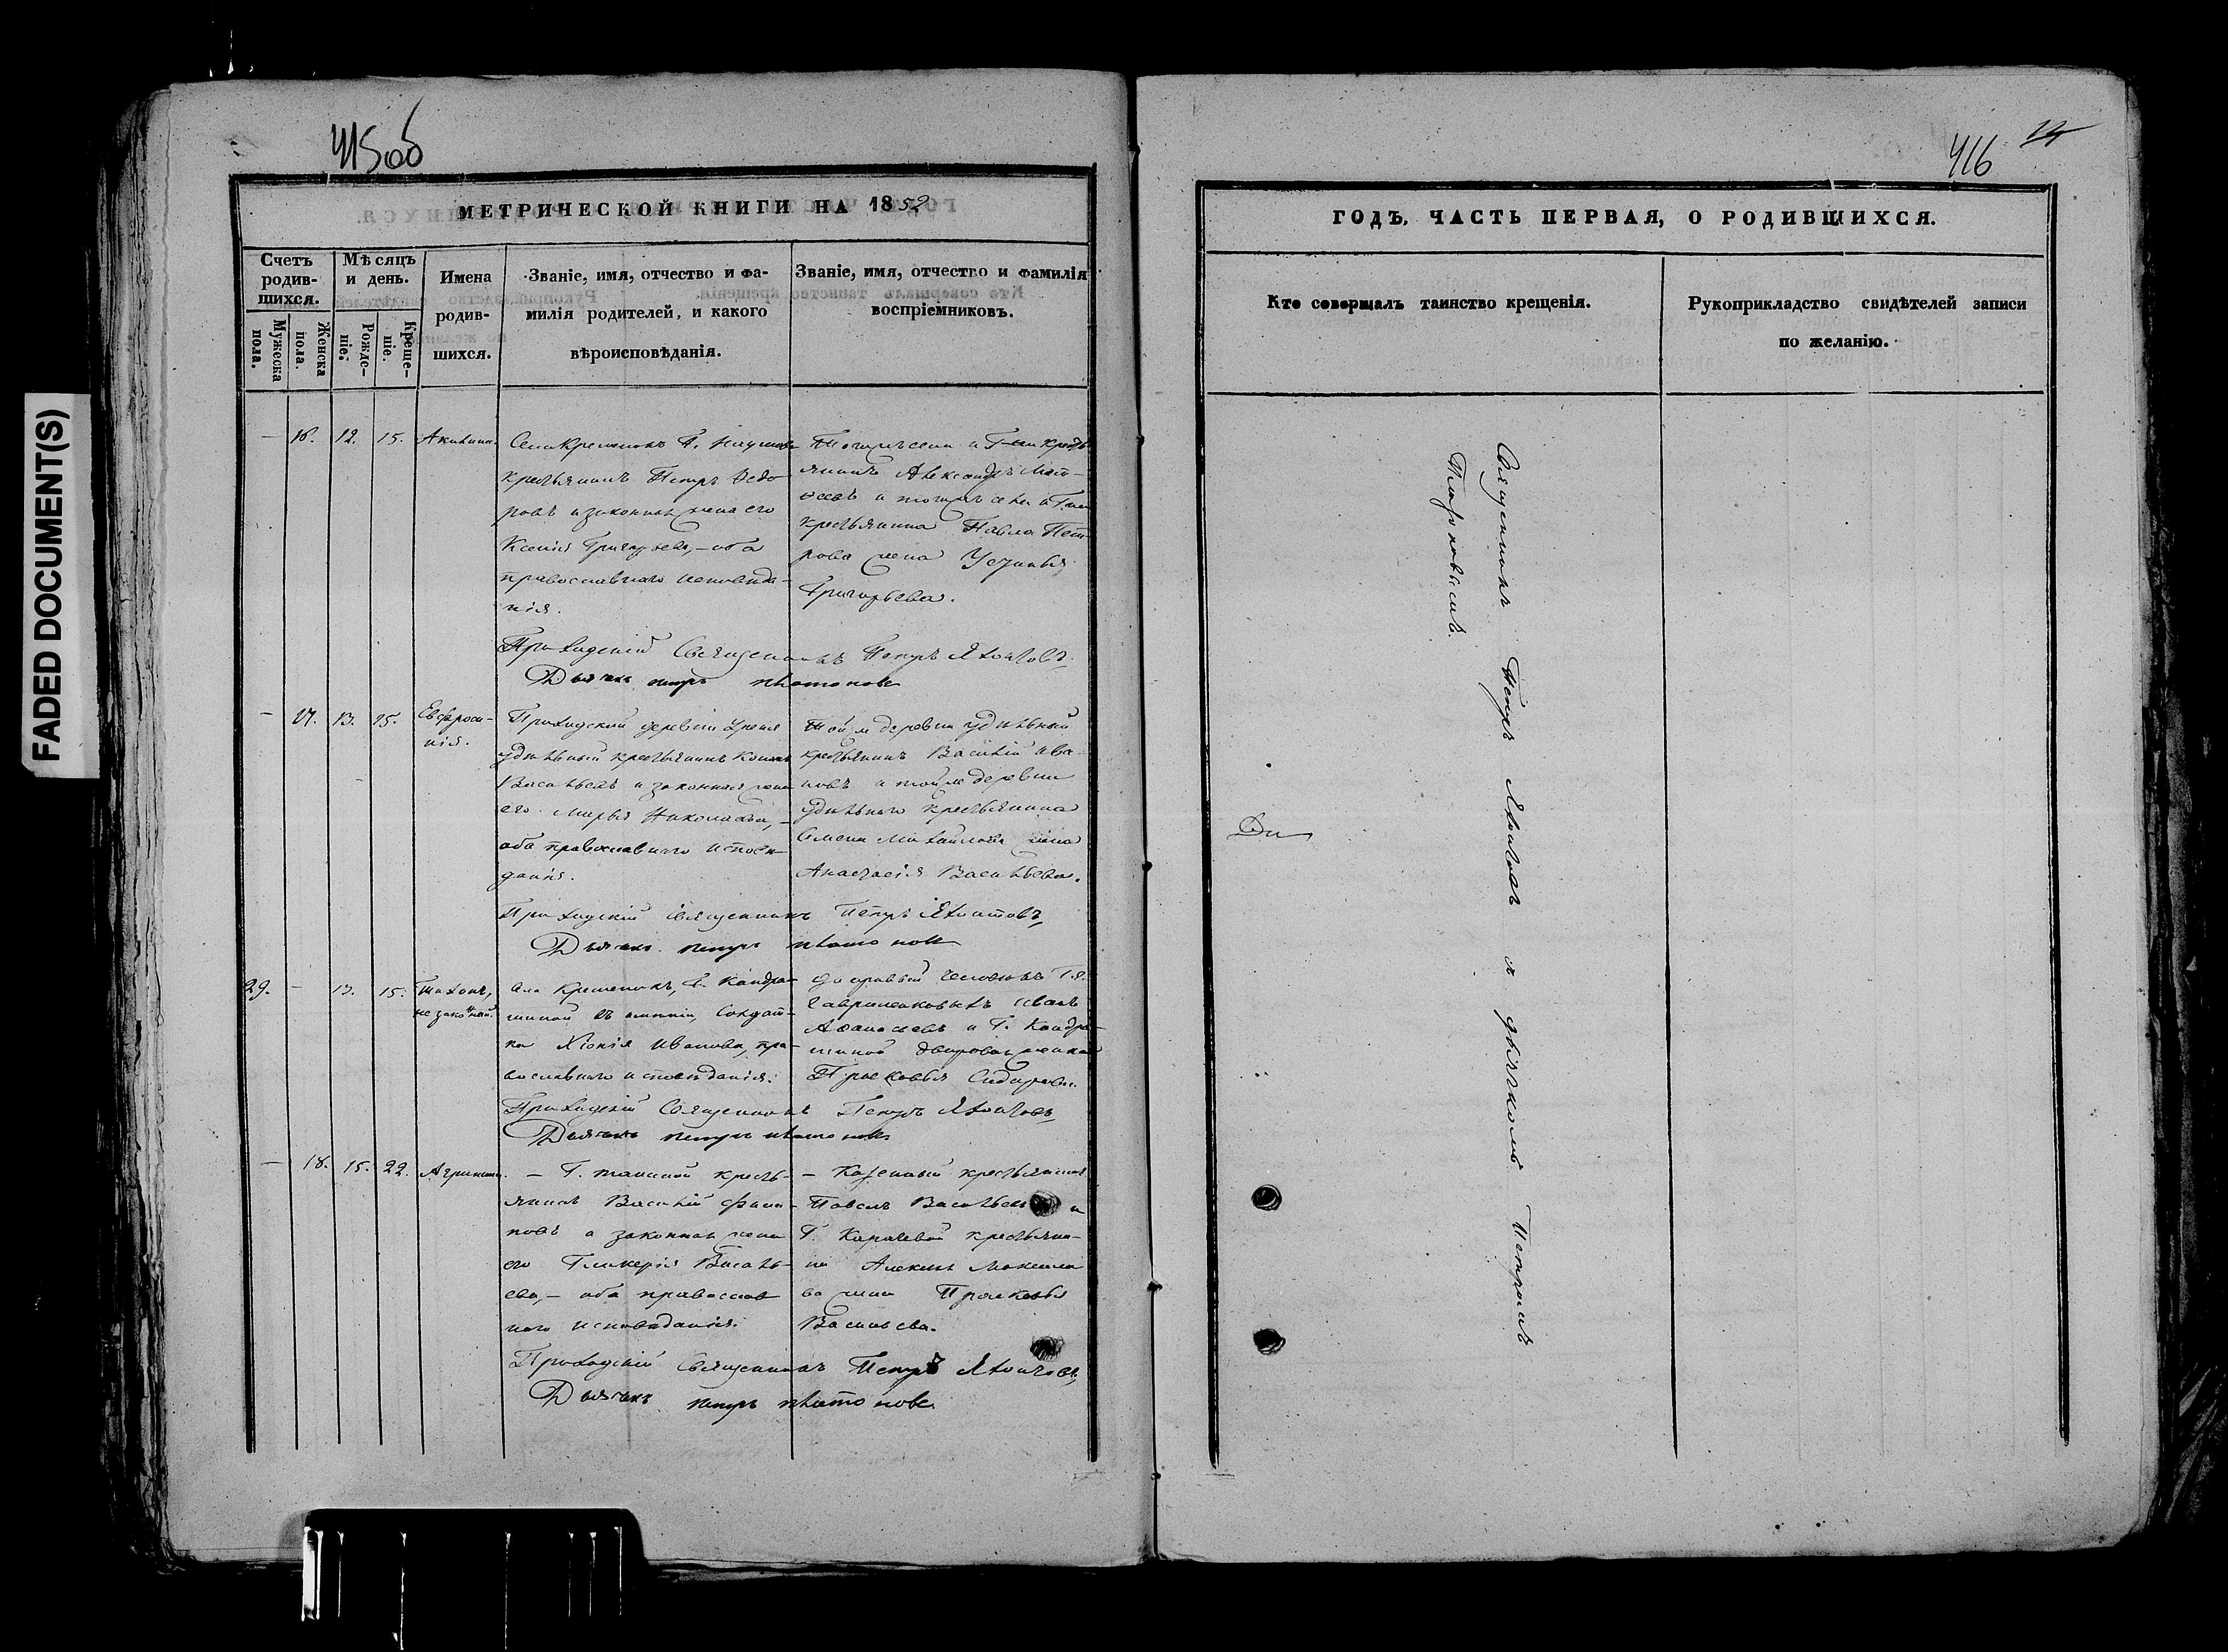 FADED DOCUMENT(S)
415об
МЕТРИЧЕСКОЙ КНИГИ НА 1852
Счетъ родив-шихся.
Мѣсяцъ и день.
Имена родив-шихся.
Званіе, имя, отчество и фа-
милія родителей, и какого
вѣроисповѣданія.
Званіе, имя, отчество и фамилія
воспріемниковъ.
Мужеска пола.
Женска пола.
Рожде-ніе.
Креще-ніе.
— 16. 12. 15. Акилина.
Села Кременокъ Г.
крестьянинъ Петръ Ѳедо-
ровъ и законная жена его
Ксенія Григорьева, — оба
православнаго исповѣда-
нія.
Тогожъ села и Г-жи кресть-
янинъ Александръ Мат-
вѣевъ и тогожъ села и Г-жи
крестьянина Павла Пет-
рова жена Устинья
Григорьева.
Приходскій Священникъ Петръ
Дьячекъ Петръ Платоновъ
— 17. 13. 15. Евфроси-
нія.
Приходской деревни
удѣльный крестьянинъ
Васильевъ и законная жена
его Марья Николаева, —
оба православнаго исповѣ-
данія.
Той же деревни удѣльный
крестьянинъ Василій Ива-
новъ и той же деревни
удѣльнаго крестьянина
Семена Михайлова жена
Анастасія Васильева.
Приходскій Священникъ Петръ
Дьячекъ Петръ Платоновъ
29. — 13. 15. Тихонъ,
незаконный.
Села Кременокъ, Г. Кандра-
шиной въ имѣніи, Солдат-
ка Хіонія Иванова, пра-
вославнаго исповѣданія.
Иванъ
Аѳанасьевъ и Г. Кандра-
шиной дворовая женка
Прасковья Сидорова.
Приходскій Священникъ Петръ
Дьячекъ Петръ Платоновъ
— 18. 15. 22. Агрипина.
— Г. кресть-
янинъ Василій Филип-
повъ и законная жена
его Гликерія Василь-
ева, — оба православ
наго исповѣданія.
— Казенный крестьянинъ
Павелъ Васильевъ и
Г. крестьяни-
на Алексѣя
ва жена Прасковья
Васильева.
Приходскій Священникъ Петръ
Дьячекъ Петръ Платоновъ
416
ГОДЪ, ЧАСТЬ ПЕРВАЯ, О РОДИВШИХСЯ.
Кто совершалъ таинство крещенія.
Рукоприкладство свидѣтелей записи
по желанію.
Священникъ Петръ съ дьячкомъ Петромъ
Платоновымъ.